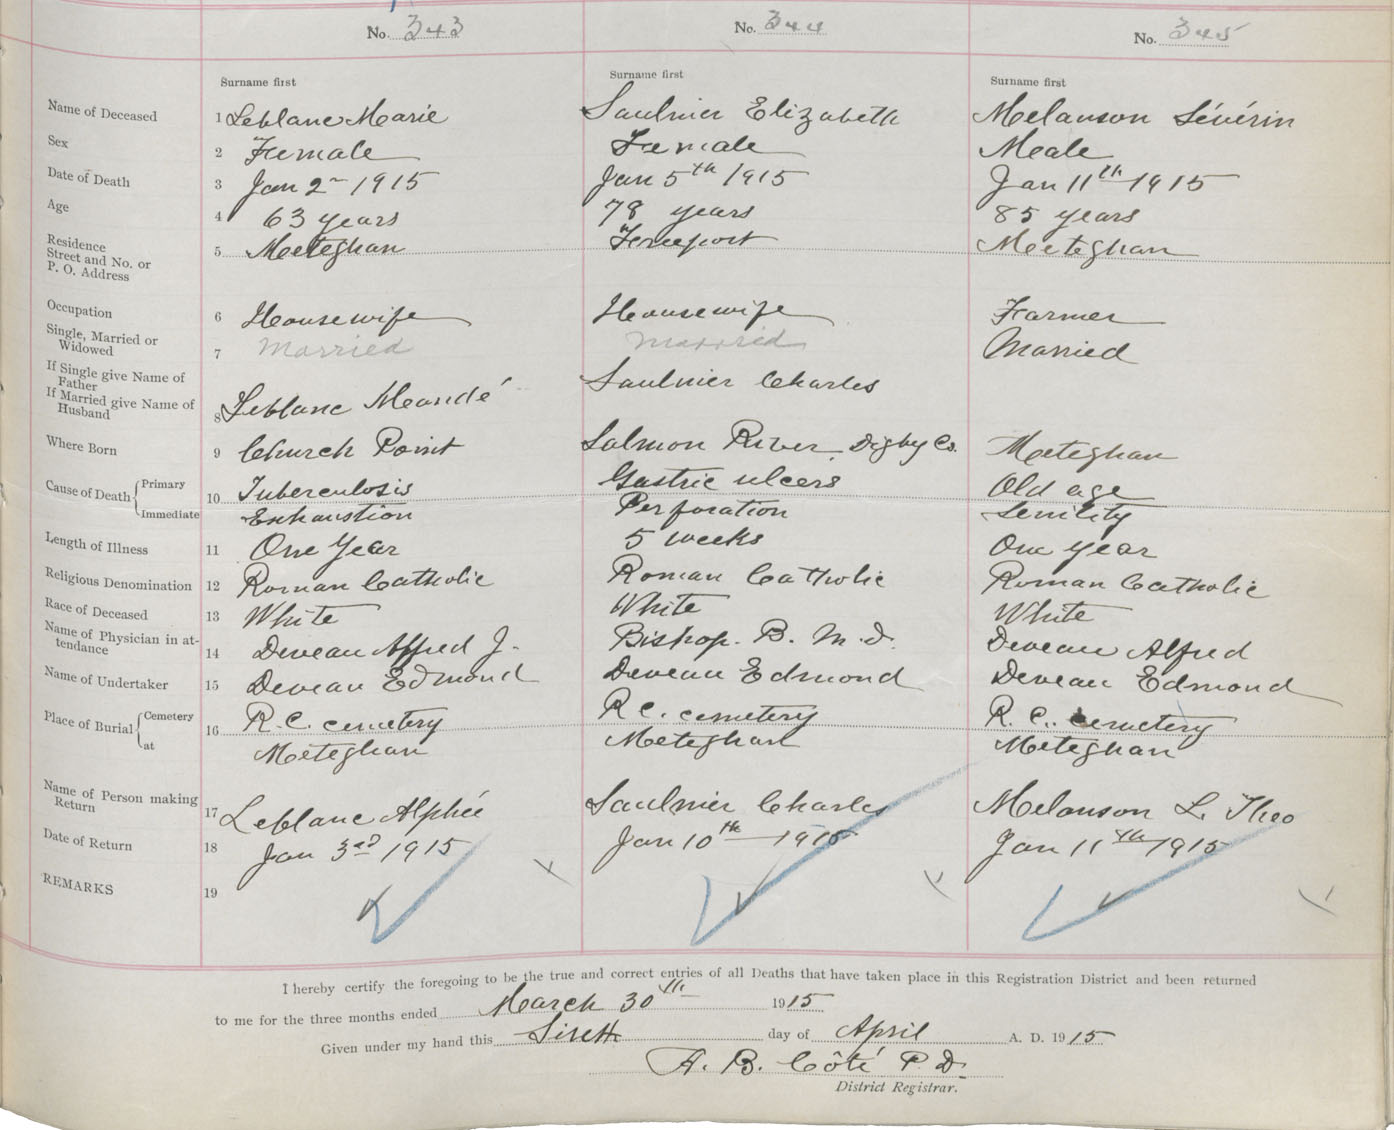 No. 343 No. 344 No. 345
Surname first Surname first Surname first
Name of Deceased 1 Leblanc Marie Saulnier Elizabeth Melanson Sévérin
Sex 2 Female Female Meale
Date of Death 3 Jan 2 1915 Jan 5th 1915 Jan 11th 1915
Age 4 63 years 78 years 85 years
Residence
Street and No. or 5 Meteghan Freeport Meteghan
P. O. Address
Occupation 6 Housewife Housewife Farmer
Single, Married or
Widowed 7 Married Married Married
If Single give Name of
Father
If Married give Name of
Husband 8 Leblanc Mandé Saulnier Charles
Where Born 9 Church Point Salmon River, Digby Co. Meteghan
Cause of Death Primary 10 Tuberculosis Gastric ulcers Old age
Immediate Exhaustion Perforation Senility
Length of Illness 11 One Year 5 weeks One year
Religious Denomination 12 Roman Catholic Roman Catholic Roman Catholic
Race of Deceased 13 White White White
Name of Physician in at-
tendance 14 Deveau Alfred J. Bishop. B. M.D. Deveau Alfred
Name of Undertaker 15 Deveau Edmond Deveau Edmond Deveau Edmond
Place of Burial Cemetery 16 R.C. cemetery R C. cemetery R.C. cemetery
at Meteghan Meteghan Meteghan
Name of Person making
Return 17 Leblanc Alphée Saulnier Charles Melanson L. Theo
Date of Return 18 Jan 3rd 1915 Jan 10th 1915 Jan 11th 1915
REMARKS 19
I hereby certify the foregoing to be the true and correct entries of all Deaths that have taken place in this Registration District and been returned
to me for the three months ended March 30th 1915
Given under my hand this day of April A. D. 1915
A. B. Côté P.D.
District Registrar.